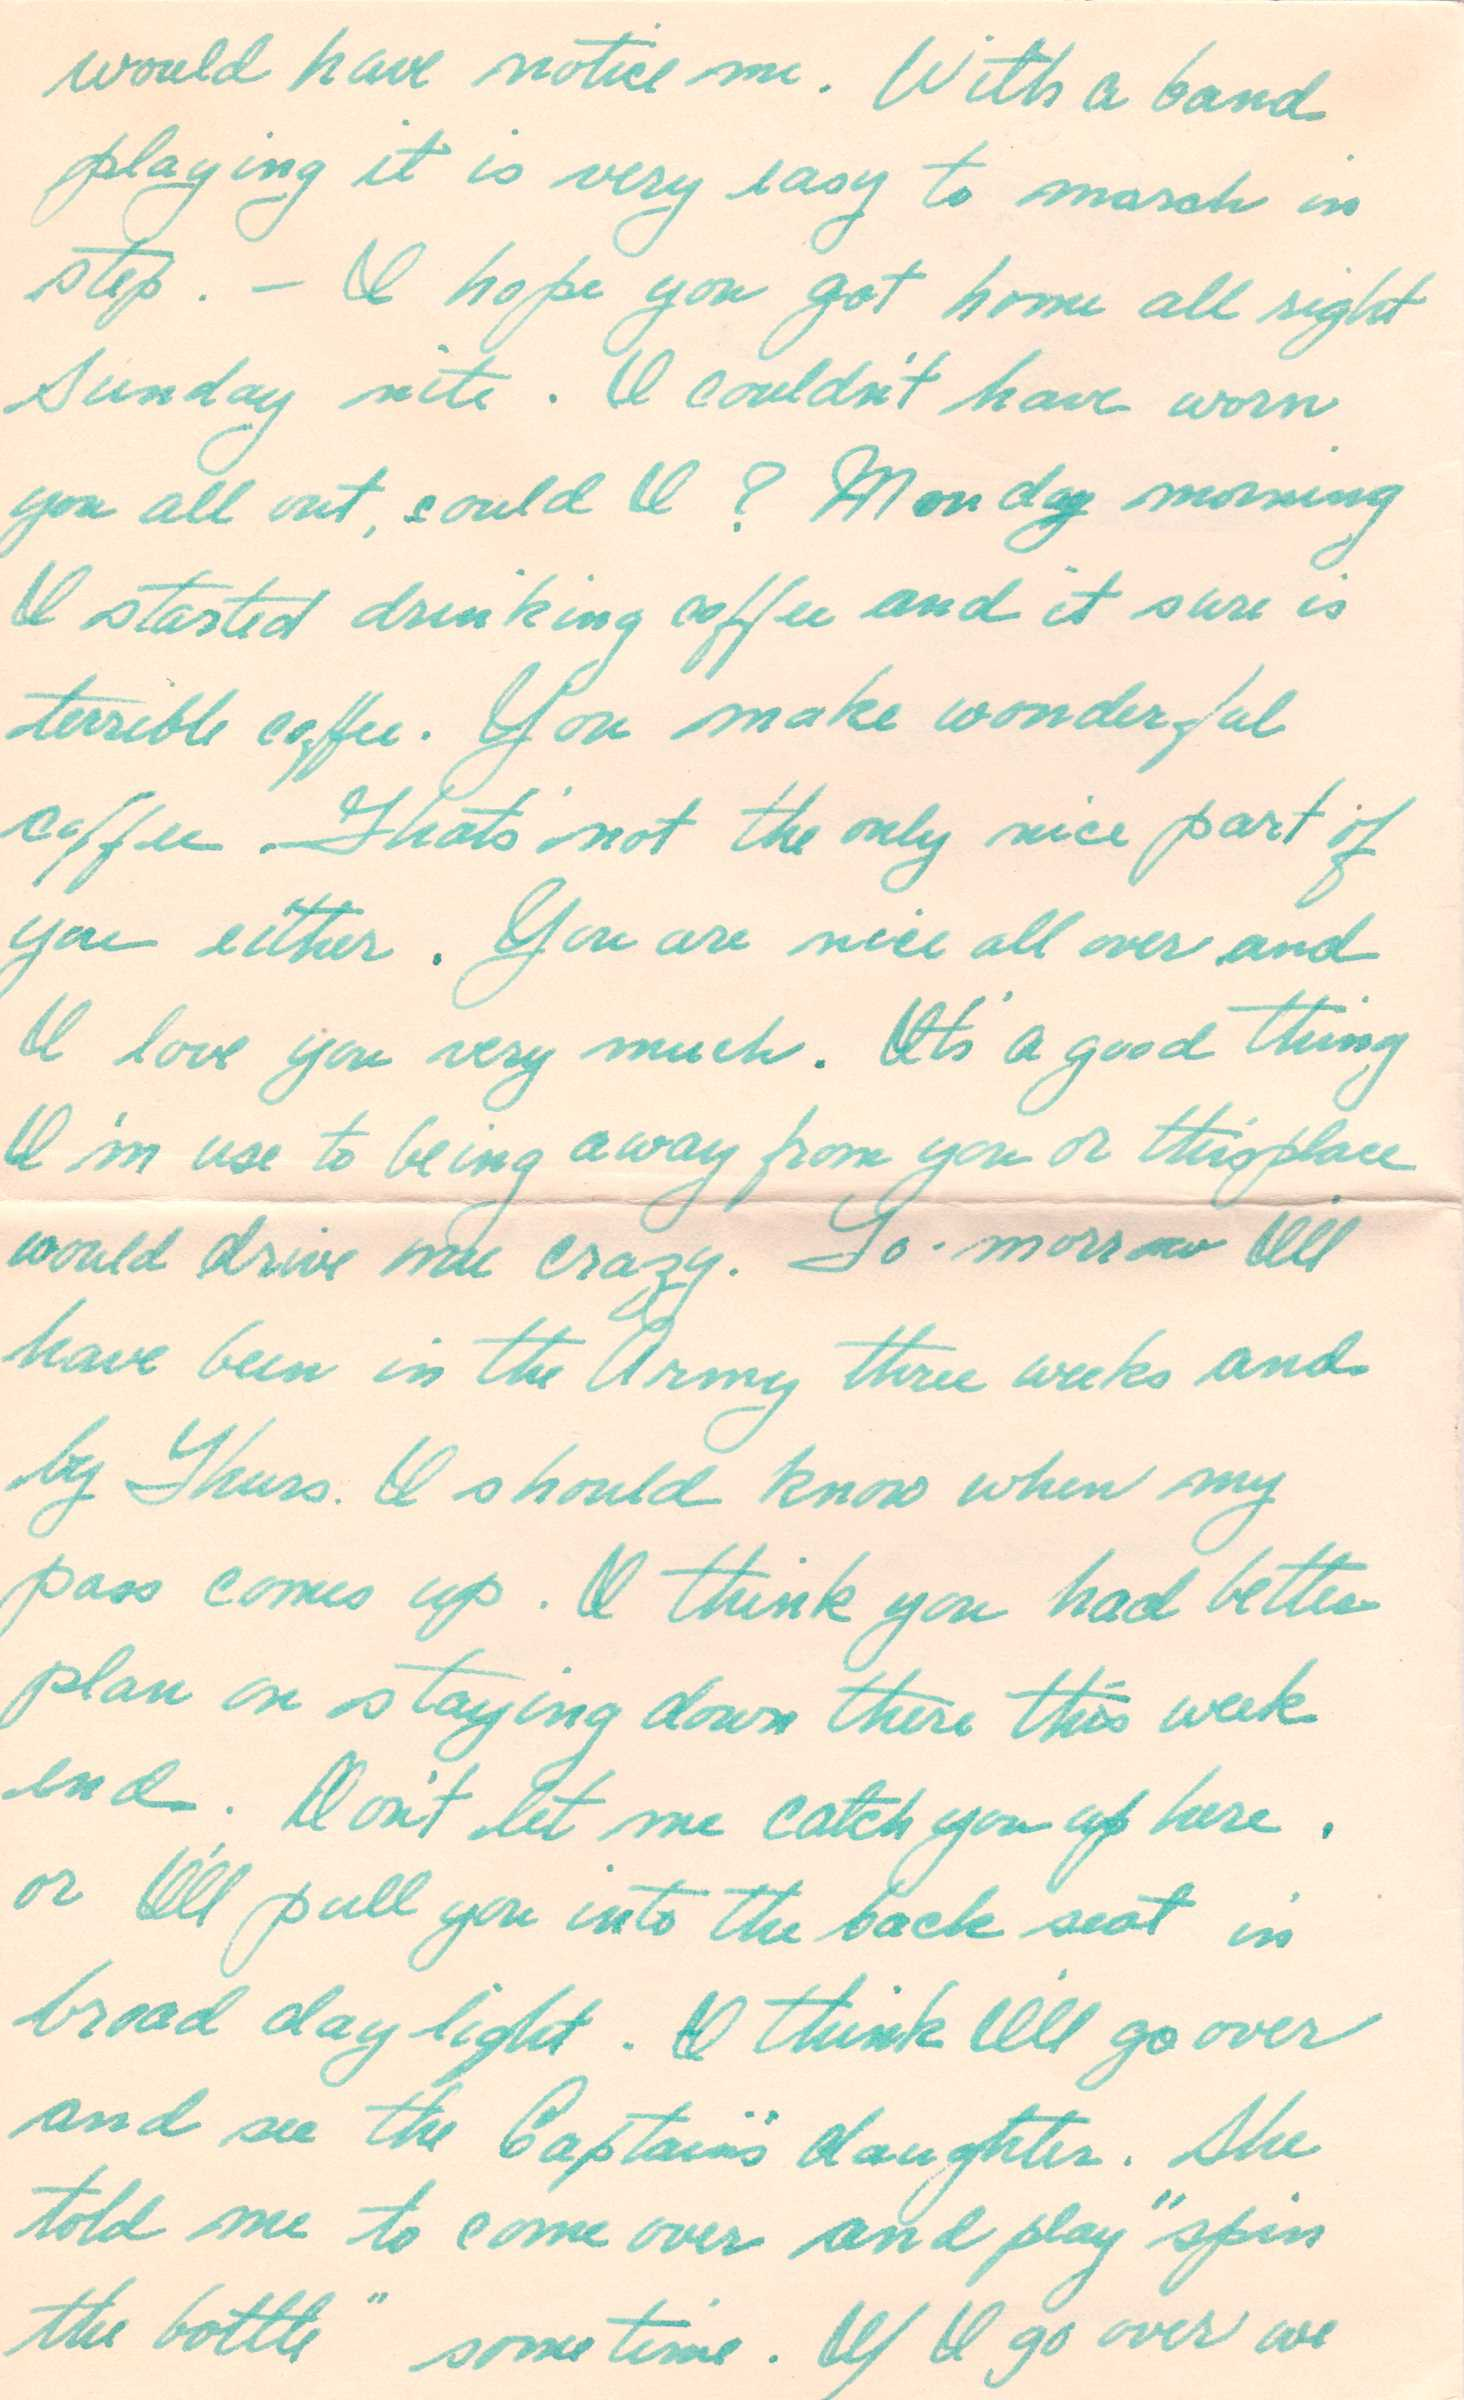 would have notice me. With a band
playing it is very easy to march in
step. - I hope you got home all right
Sunday nite. I couldn't have worn
you all out, could I? Monday morning
I started drinking coffee and it sure is
terrible coffee. You make wonderful
coffee. That's not the only nice part of
you either. You are nice all over and
I love you very much. It's a good thing
I'm use to being away from you or this place
would drive me crazy. To-morrow I'll
have been in the Army three weeks and
by Thurs. I should know when my
pass comes up. I think you had better
plan on staying down there this week
end. Don't let me catch you up here.
or I'll pull you into the back seat in
broad day light. I think I'll go over
and see the Captain's daughter. She
told me to come over and play "spin
the bottle" some time. If I go over we